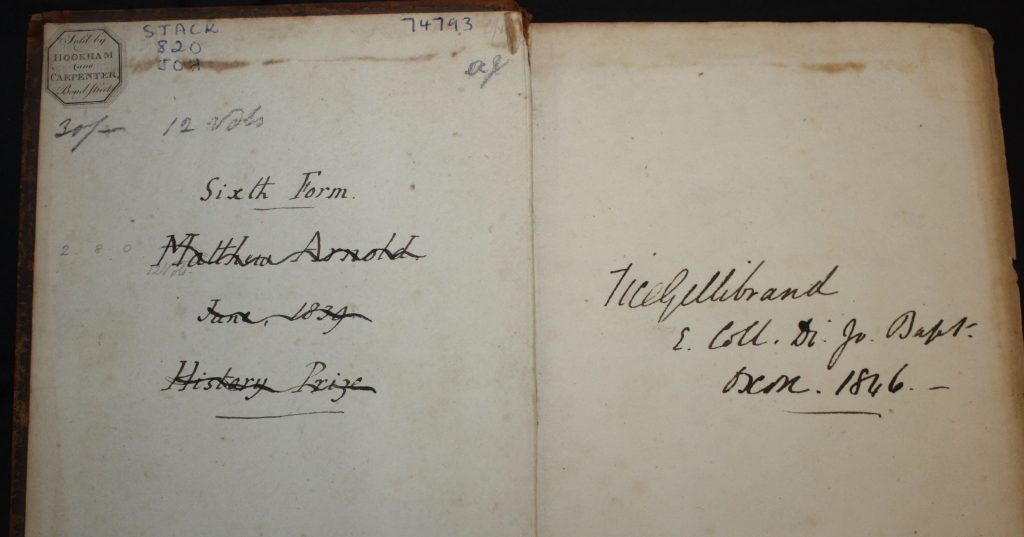 Sold by
HOOKHAM
and
CARPENTER,
Bond Street
STACK
820
JOH
74793
30/-
12 Vols
Sixth Form.
Matthew Arnold.
2 . 8 . 0
12 Vols.
June, 1839.
History Prize
Gellibrand
E. Coll. Di. Jo. Bapt.
Oxon. 1846. –